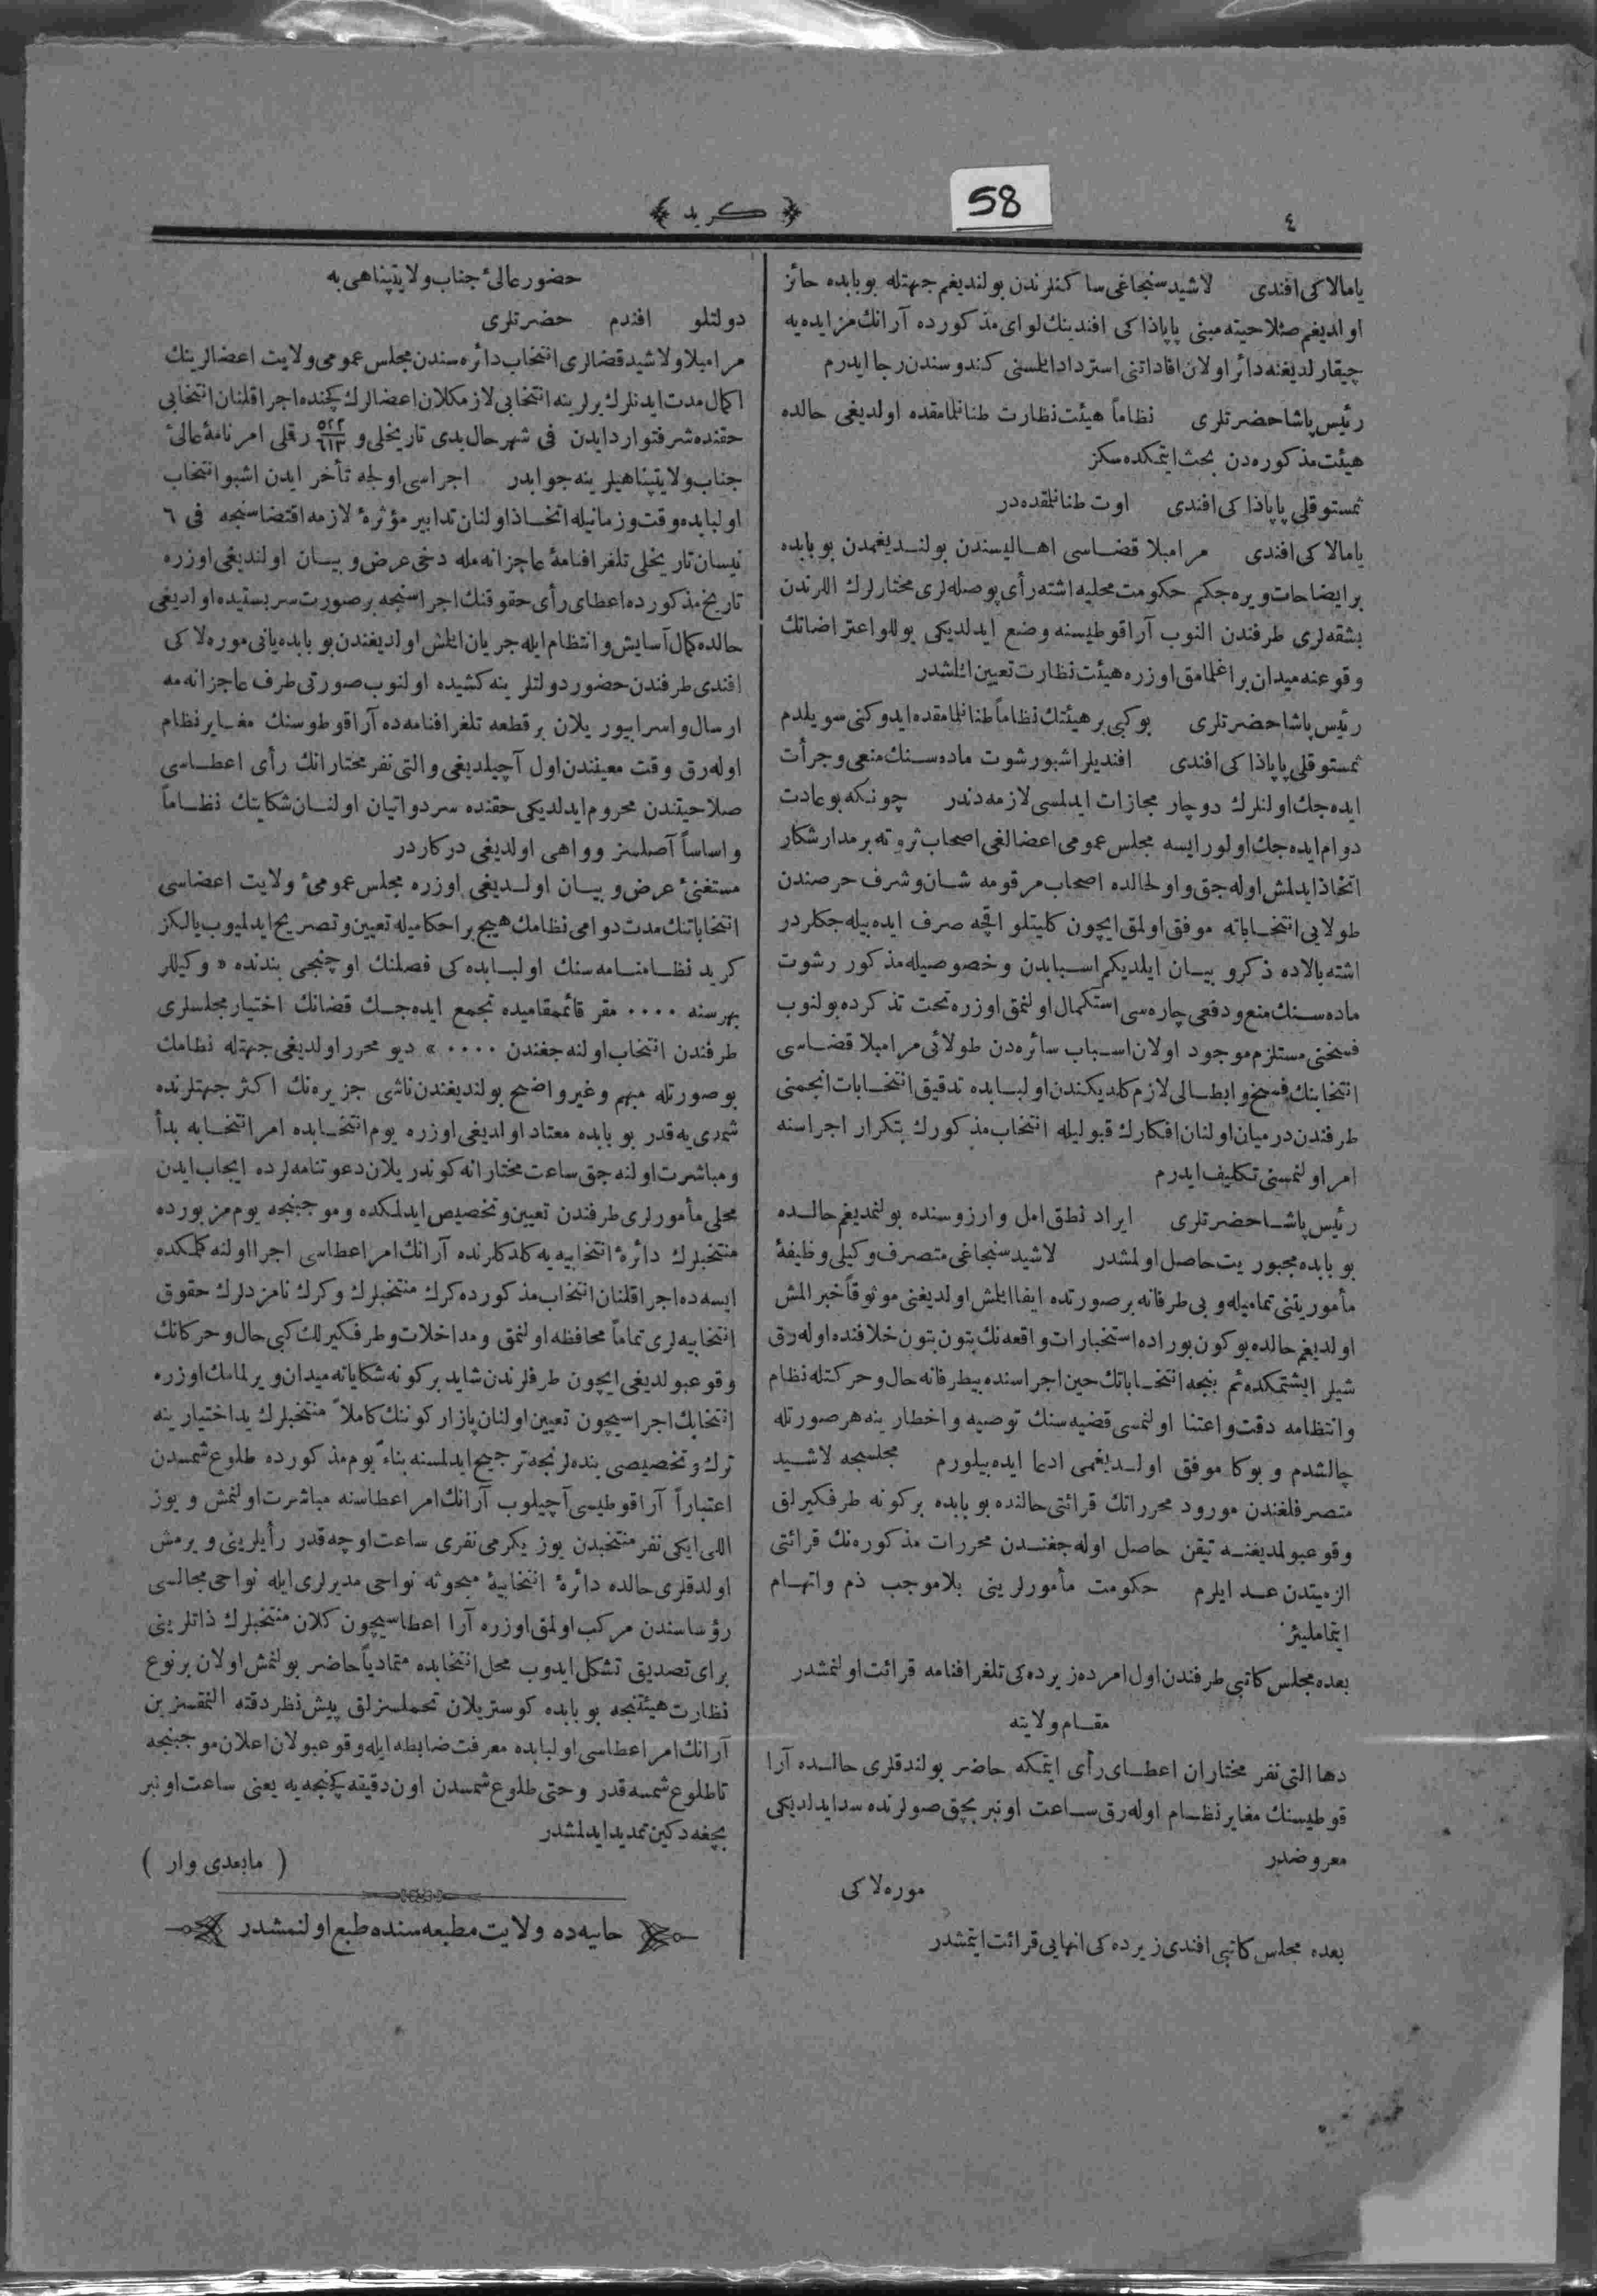 ٤
﴿ كريد ﴾
58
يامالا كی افندی لاشيد سنجاغی ساكنلرندن بولنديغم جهتله بوبابده حائز
اولديغم صلاحيته مبنی پاپاذا كی افندينك لوای مذكورده آرانك مزايده يه
چيقارلديغنه دائر اولان افاداتنی استرداد ايلسنی كندوسندن رجا ايدرم
رئيس پاشا حضرتلری نظاماً هيئت نظارت طنانلمامقده اولديغی حالده
هيئت مذكوره دن بحث ايتمكده سكز
ثمستوقلی پاپاذا كی افندی اوت طنانلمقده در
يامالا كی افندی مرامبلا قضاسی اهاليسندن بولنديغمدن بوبابده
بر ايضاحات ويره جكم حكومت محليه اشته رأی پوصله لری مختارلرك اللرندن
بشقه لری طرفندن النوب آرا قوطيسنه وضع ايدلديكی يوللو اعتراضاتك
وقوعنه ميدان براغلمامق اوزره هيئت نظارت تعيين ايلشدر
رئيس پاشا حضرتلری بوكبی بر هيئتك نظاماً طنانلمامقده ايدوكنی سويلدم
ثمستوقلی پاپاذا كی افندی افنديلر اشبو رشوت ماده سنك منعی و جرأت
ايده جك اولنلرك دوچار مجازات ايدلمسی لازمه دندر چونكه بو عادت
دوام ايده جك اولور ايسه مجلس عمومی اعضالغی اصحاب ثروته بر مدار شكار
اتخاذ ايدلمش اوله جق و اولحالده اصحاب مرقومه شان و شرف حرصندن
طولايی انتخاباته موفق اولمق ايچون كليتلو اقچه صرف ايده بيله جكلردر
اشته بالاده ذكر و بيان ايلديكم اسبابدن و خصوصيله مذكور رشوت
ماده سنك منع و دفعی چاره سی استكمال اولنمق اوزره تحت تذكرده بولنوب
فسخنی مستلزم موجود اولان اسباب سائره دن طولائی مرامبلا قضاسی
انتخابنك فسخ و ابطالی لازم كلديكندن اولبابده تدقيق انتخابات انجمنی
طرفندن درميان اولنان افكارك قبوليله انتخاب مذكورك بتكرار اجراسنه
امر اولنمسنی تكليف ايدرم
رئيس پاشا حضرتلری ايراد نطق امل و ارزوسنده بولنمديغم حالده
بوبابده مجبوريت حاصل اولمشدر لاشيد سنجاغی متصرف وكيلی وظيفهٔ
مأموريتنی تماميله و بی طرفانه بر صورتده ايفا ايلش اولديغنی موثوقاً خبر المش
اولديغم حالده بوكون بوراده استخبارات واقعه نك بتون بتون خلافنده اوله رق
شيلر ايشتمكده ئم بنجه انتخاباتك حين اجراسنده بيطرفانه حال و حركتله نظام
و انتظامه دقت و اعتنا اولنمسی قضيه سنك توصيه و اخطارينه هر صورتله
چالشدم و بوكا موفق اولديغمی ادعا ايده بيلورم مجلسجه لاشيد
متصرفلغندن مورود محرراتك قرائتی حالنده بوبابده بركونه طرفكيرلق
وقوعبولمديغنه تيقن حاصل اوله جغندن محررات مذكوره نك قرائتی
الزميتدن عد ايلرم حكومت مأمورلرينی بلاموجب ذم و اتهام
ايتمامليئز
بعده مجلس كاتبی طرفندن اول امرده زيرده كی تلغرافنامه قرائت اولنمشدر
مقام ولايته
دها التی نفر مختاران اعطای رأی ايتمكه حاضر بولندقلری حالده آرا
قوطيسنك مغاير نظام اوله رق ساعت اون بر بچق صولرنده سد ايدلديكی
معروضدر
موره لا كی
بعده مجلس كاتبی افندی زيرده كی انهايی قرائت ايتمشدر
حضور عالیٔ جناب ولايتپناهی يه
دولتلو افندم حضرتلری
مرامبلا و لاشيد قضالری انتخاب دائره سندن مجلس عمومی ولايت اعضالرينك
اكمال مدت ايدنلرك يرلرينه انتخابی لازمكلان اعضالرك كچنده اجرا قلنان انتخابی
حقنده شرفتوارد ايدن فی شهر حال يدی تاريخلی و ٥٢٢/٦١٣ رقلی امرنامهٔ عالئ
جناب ولايتپناهيلرينه جوابدر اجراسی اولجه تأخر ايدن اشبو انتخاب
اولبابده وقت و زمانيله اتخاذ اولنان تدابير مؤثرهٔ لازمه اقتضاسنجه فی ٦
نيسان تاريخلی تلغرافنامهٔ عاجزانه مله دخی عرض و بيان اولنديغی اوزره
تاريخ مذكورده اعطای رأی حقوقنك اجراسنجه بر صورت سربستيده اولديغی
حالده كمال آسايش و انتظام ايله جريان ايلش اولديغندن بوبابده يانی موره لا كی
افندی طرفندن حضور دولتلرينه كشيده اولنوب صورتی طرف عاجزانه مه
ارسال و اسرا بيوريلان بر قطعه تلغرافنامه ده آرا قوطوسنك مغاير نظام
اوله رق وقت معيندن اول آچيلديغی و التی نفر مختارانك رأی اعطاسی
صلاحيتندن محروم ايدلديكی حقنده سرد و اتيان اولنان شكايتك نظاماً
و اساساً آصلسز و واهی اولديغی دركاردر
مستغنیٔ عرض و بيان اولديغی اوزره مجلس عمومیٔ ولايت اعضاسی
انتخاباتنك مدت دوامی نظامك هيچ بر احكاميله تعيين و تصريح ايدلميوب يالكز
كريد نظامنامه سنك اولبابده كی فصلنك اوچنجی بندنده « وكيللر
بهر سنه ٠٠٠٠ مقر قائممقاميده تجمع ايده جك قضانك اختيار مجلسلری
طرفندن انتخاب اولنه جغندن ٠٠٠٠ » ديو محرر اولديغی جهتله نظامك
بو صورتله مبهم و غير واضح بولنديغندن ناشی جزيره نك اكثر جهتلرنده
شمدی يه قدر بوبابده معتاد اولديغی اوزره يوم انتخابده امر انتخابه بدأ
و مباشرت اولنه جق ساعت مختارانه كوندريلان دعوتنامه لرده ايجاب ايدن
محلی مأمورلری طرفندن تعيين و تخصيص ايدلمكده و موجبنجه يوم مزبورده
منتخبلرك دائرهٔ انتخابيه يه كلدكلرنده آرانك امر اعطاسی اجرا اولنه كلمكده
ايسه ده اجرا قلنان انتخاب مذكورده كرك منتخبلرك و كرك نامزدلرك حقوق
انتخابيه لری تماماً محافظه اولنمق و مداخلات و طرفكيرلك كبی حال و حركاتك
وقوعبولديغی ايچون طرفلرندن شايد بركونه شكاياته ميدان ويرلمامك اوزره
انتخابك اجراسيچون تعيين اولنان پازار كوننك كاملاً منتخبلرك يد اختيارينه
ترك و تخصيصی بنده لرنجه ترجيح ايدلمسنه بناءً يوم مذكورده طلوع شمسدن
اعتباراً آرا قوطيسی آچيلوب آرانك امر اعطاسنه مباشرت اولنمش و يوز
اللی ايكی نفر منتخبدن يوز يكرمی نفری ساعت اوچه قدر رأيلرينی ويرمش
اولدقلری حالده دائرهٔ انتخابيهٔ مبحوثه نواحی مديرلری ايله نواحی مجالسی
رؤساسندن مركب اولمق اوزره آرا اعطاسيچون كلان منتخبلرك ذاتلرينی
برای تصديق تشكل ايدوب محل انتخابده متمادياً حاضر بولنمش اولان بر نوع
نظارت هيئتنجه بوبابده كوستريلان تحملسزلق پيش نظر دقته النمقسزين
آرانك امر اعطاسی اولبابده معرفت ضابطه ايله وقوعبولان اعلان موجبنجه
تا طلوع شمسه قدر و حتی طلوع شمسدن اون دقيقه كچنجه يه يعنی ساعت اون بر
بچغه دكين تمديد ايدلمشدر
( مابعدی وار )
حانيه ده ولايت مطبعه سنده طبع اولنمشدر